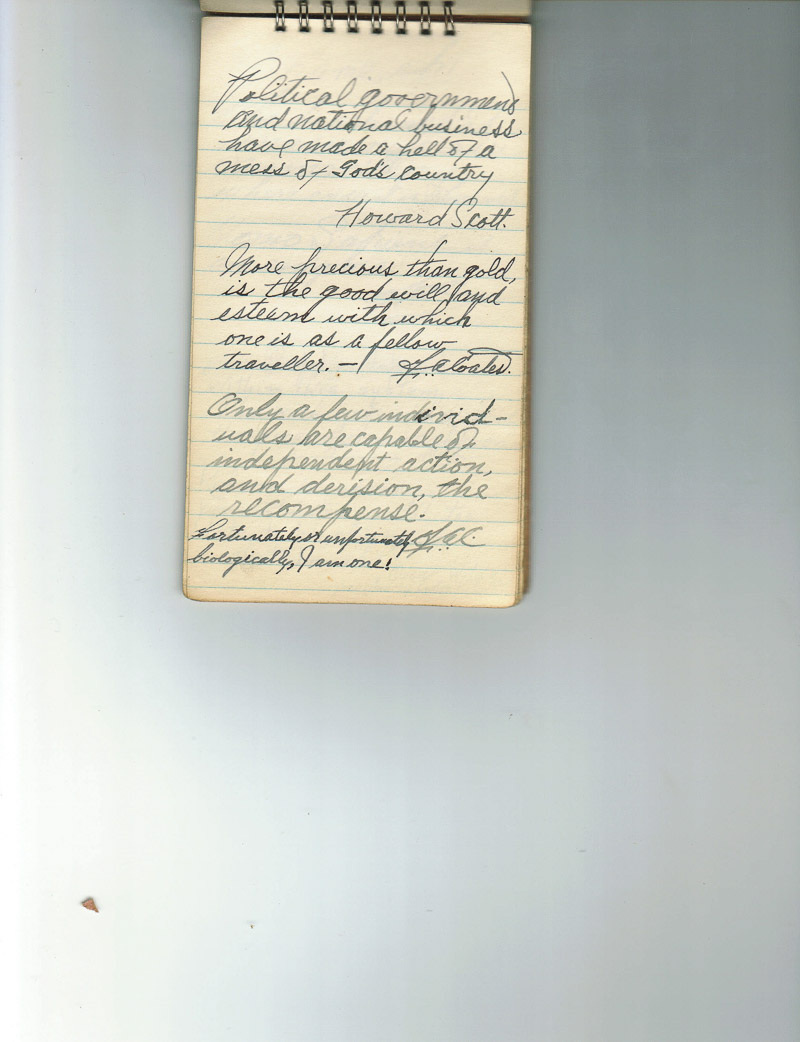 Political government
and national business
have made a hell of a
mess of God's Country
Howard Scott.
More precious than gold,
is the good will, and
esteem with which
one is as a fellow
traveller. — Coates.
Only a few individ-
uals are capable of
independent action,
and derision, the
recompense.
Fortunately or unfortunately
biologically, I am one!